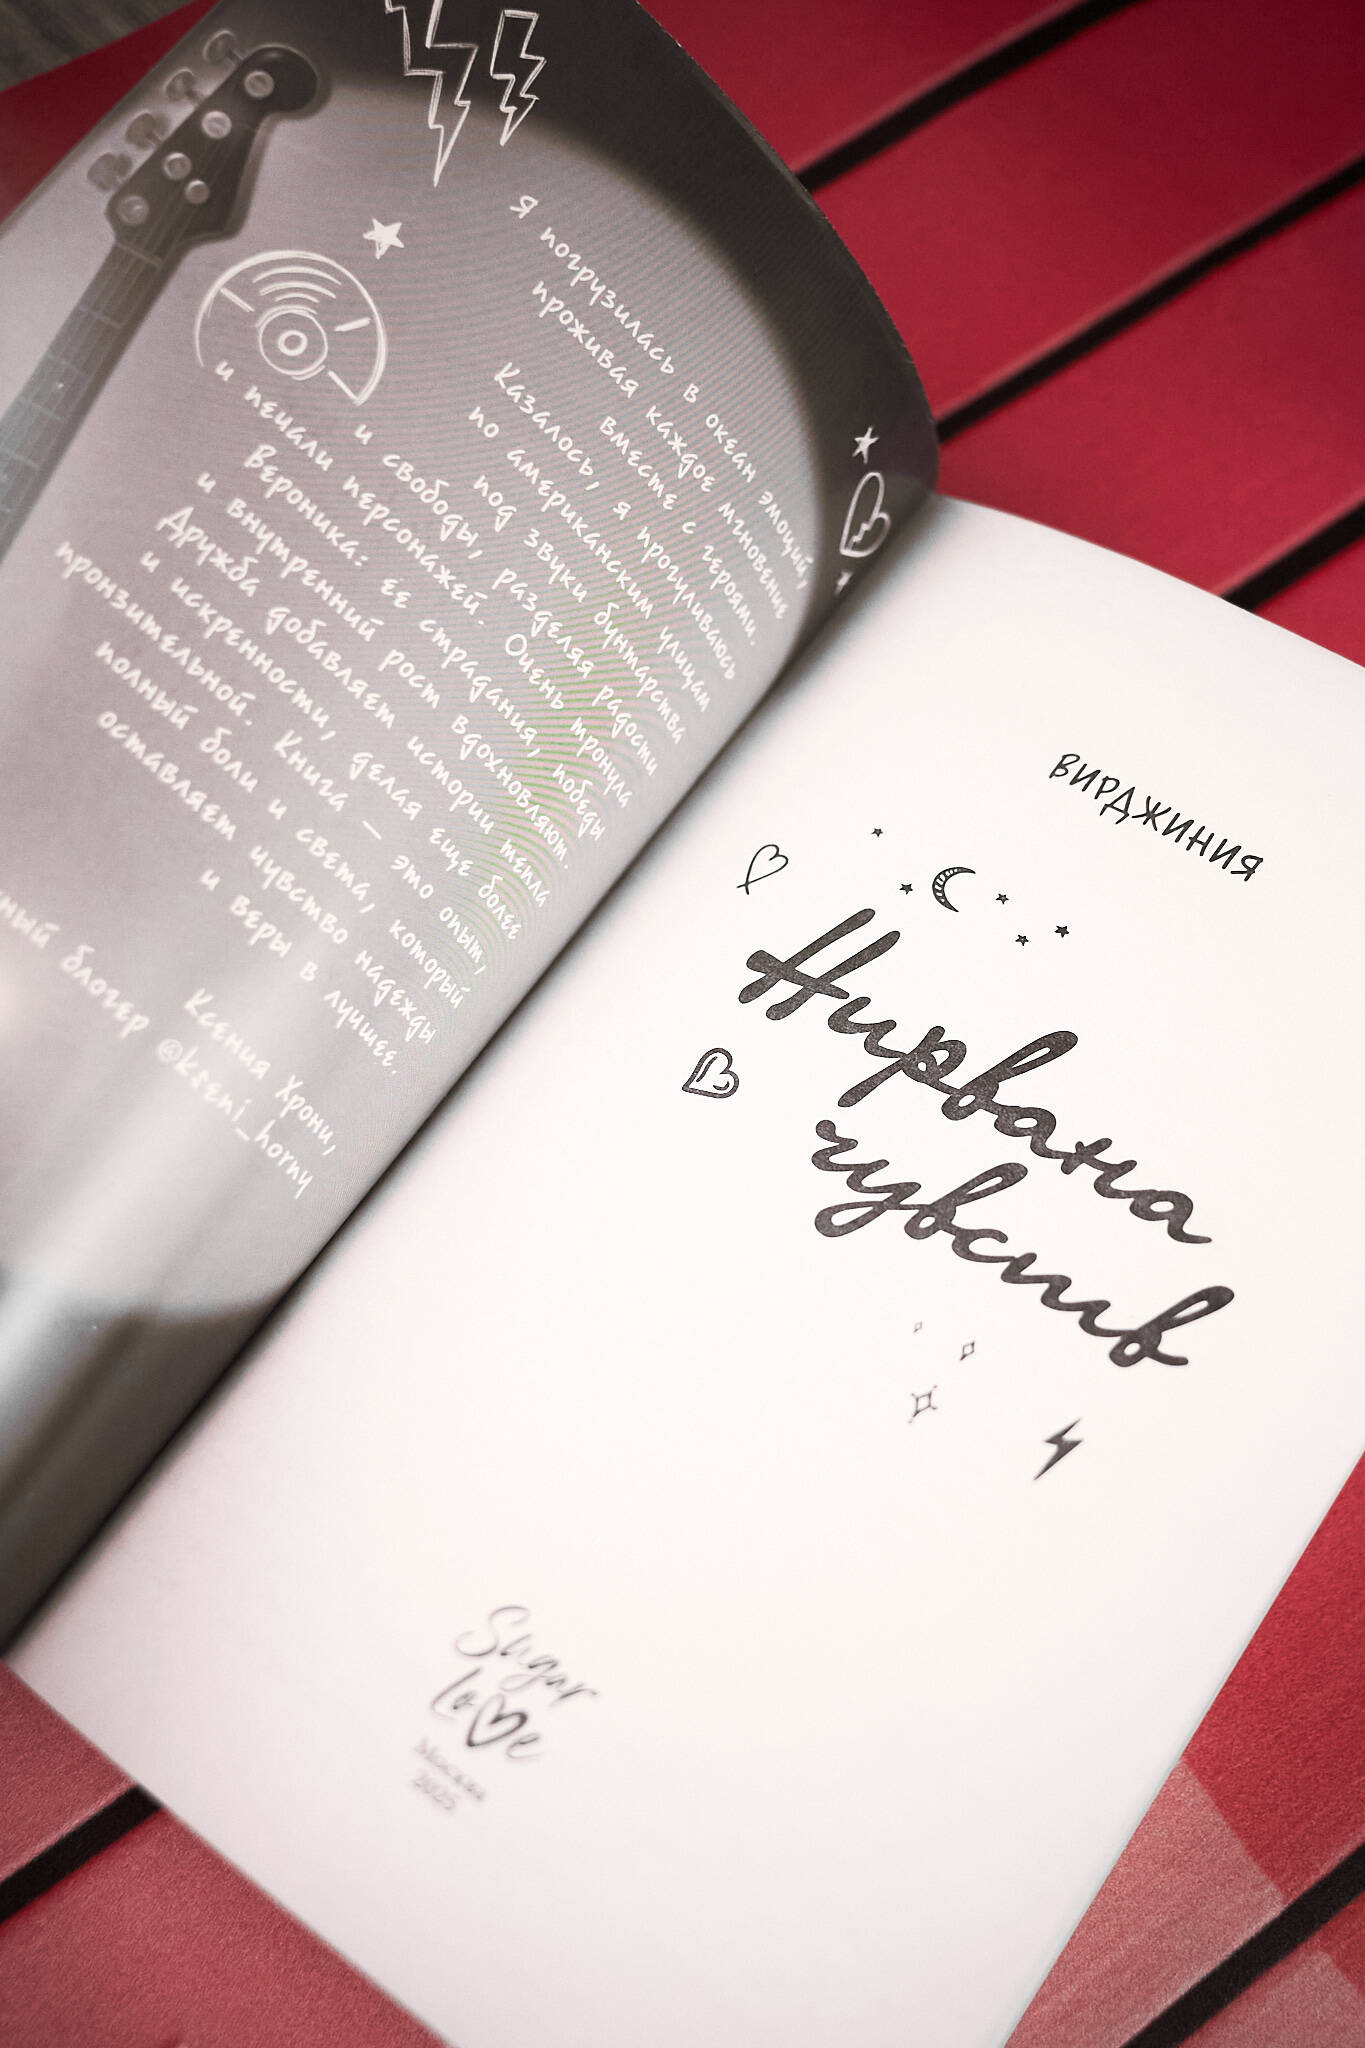 Я погрузилась в океан эмоций,
проживая каждое мгновение
вместе с героями.
Казалось, я прогуливаюсь
по американским улицам
под звуки бунтарства
и свободы, разделяя радости
и печали персонажей. Очень тронула
Вероника: ее страдания, победы
и внутренний рост вдохновляют.
Дружба добавляет истории тепла
и искренности, делая еще более
пронзительной. Книга – это опыт,
полный боли и света, который
оставляет чувство надежды
и веры в лучшее.
Ксения Хрони,
блогер @kseni_horny
ВИРДЖИНИЯ
Нирвана
чувств
Sugar
Love
Москва
2025